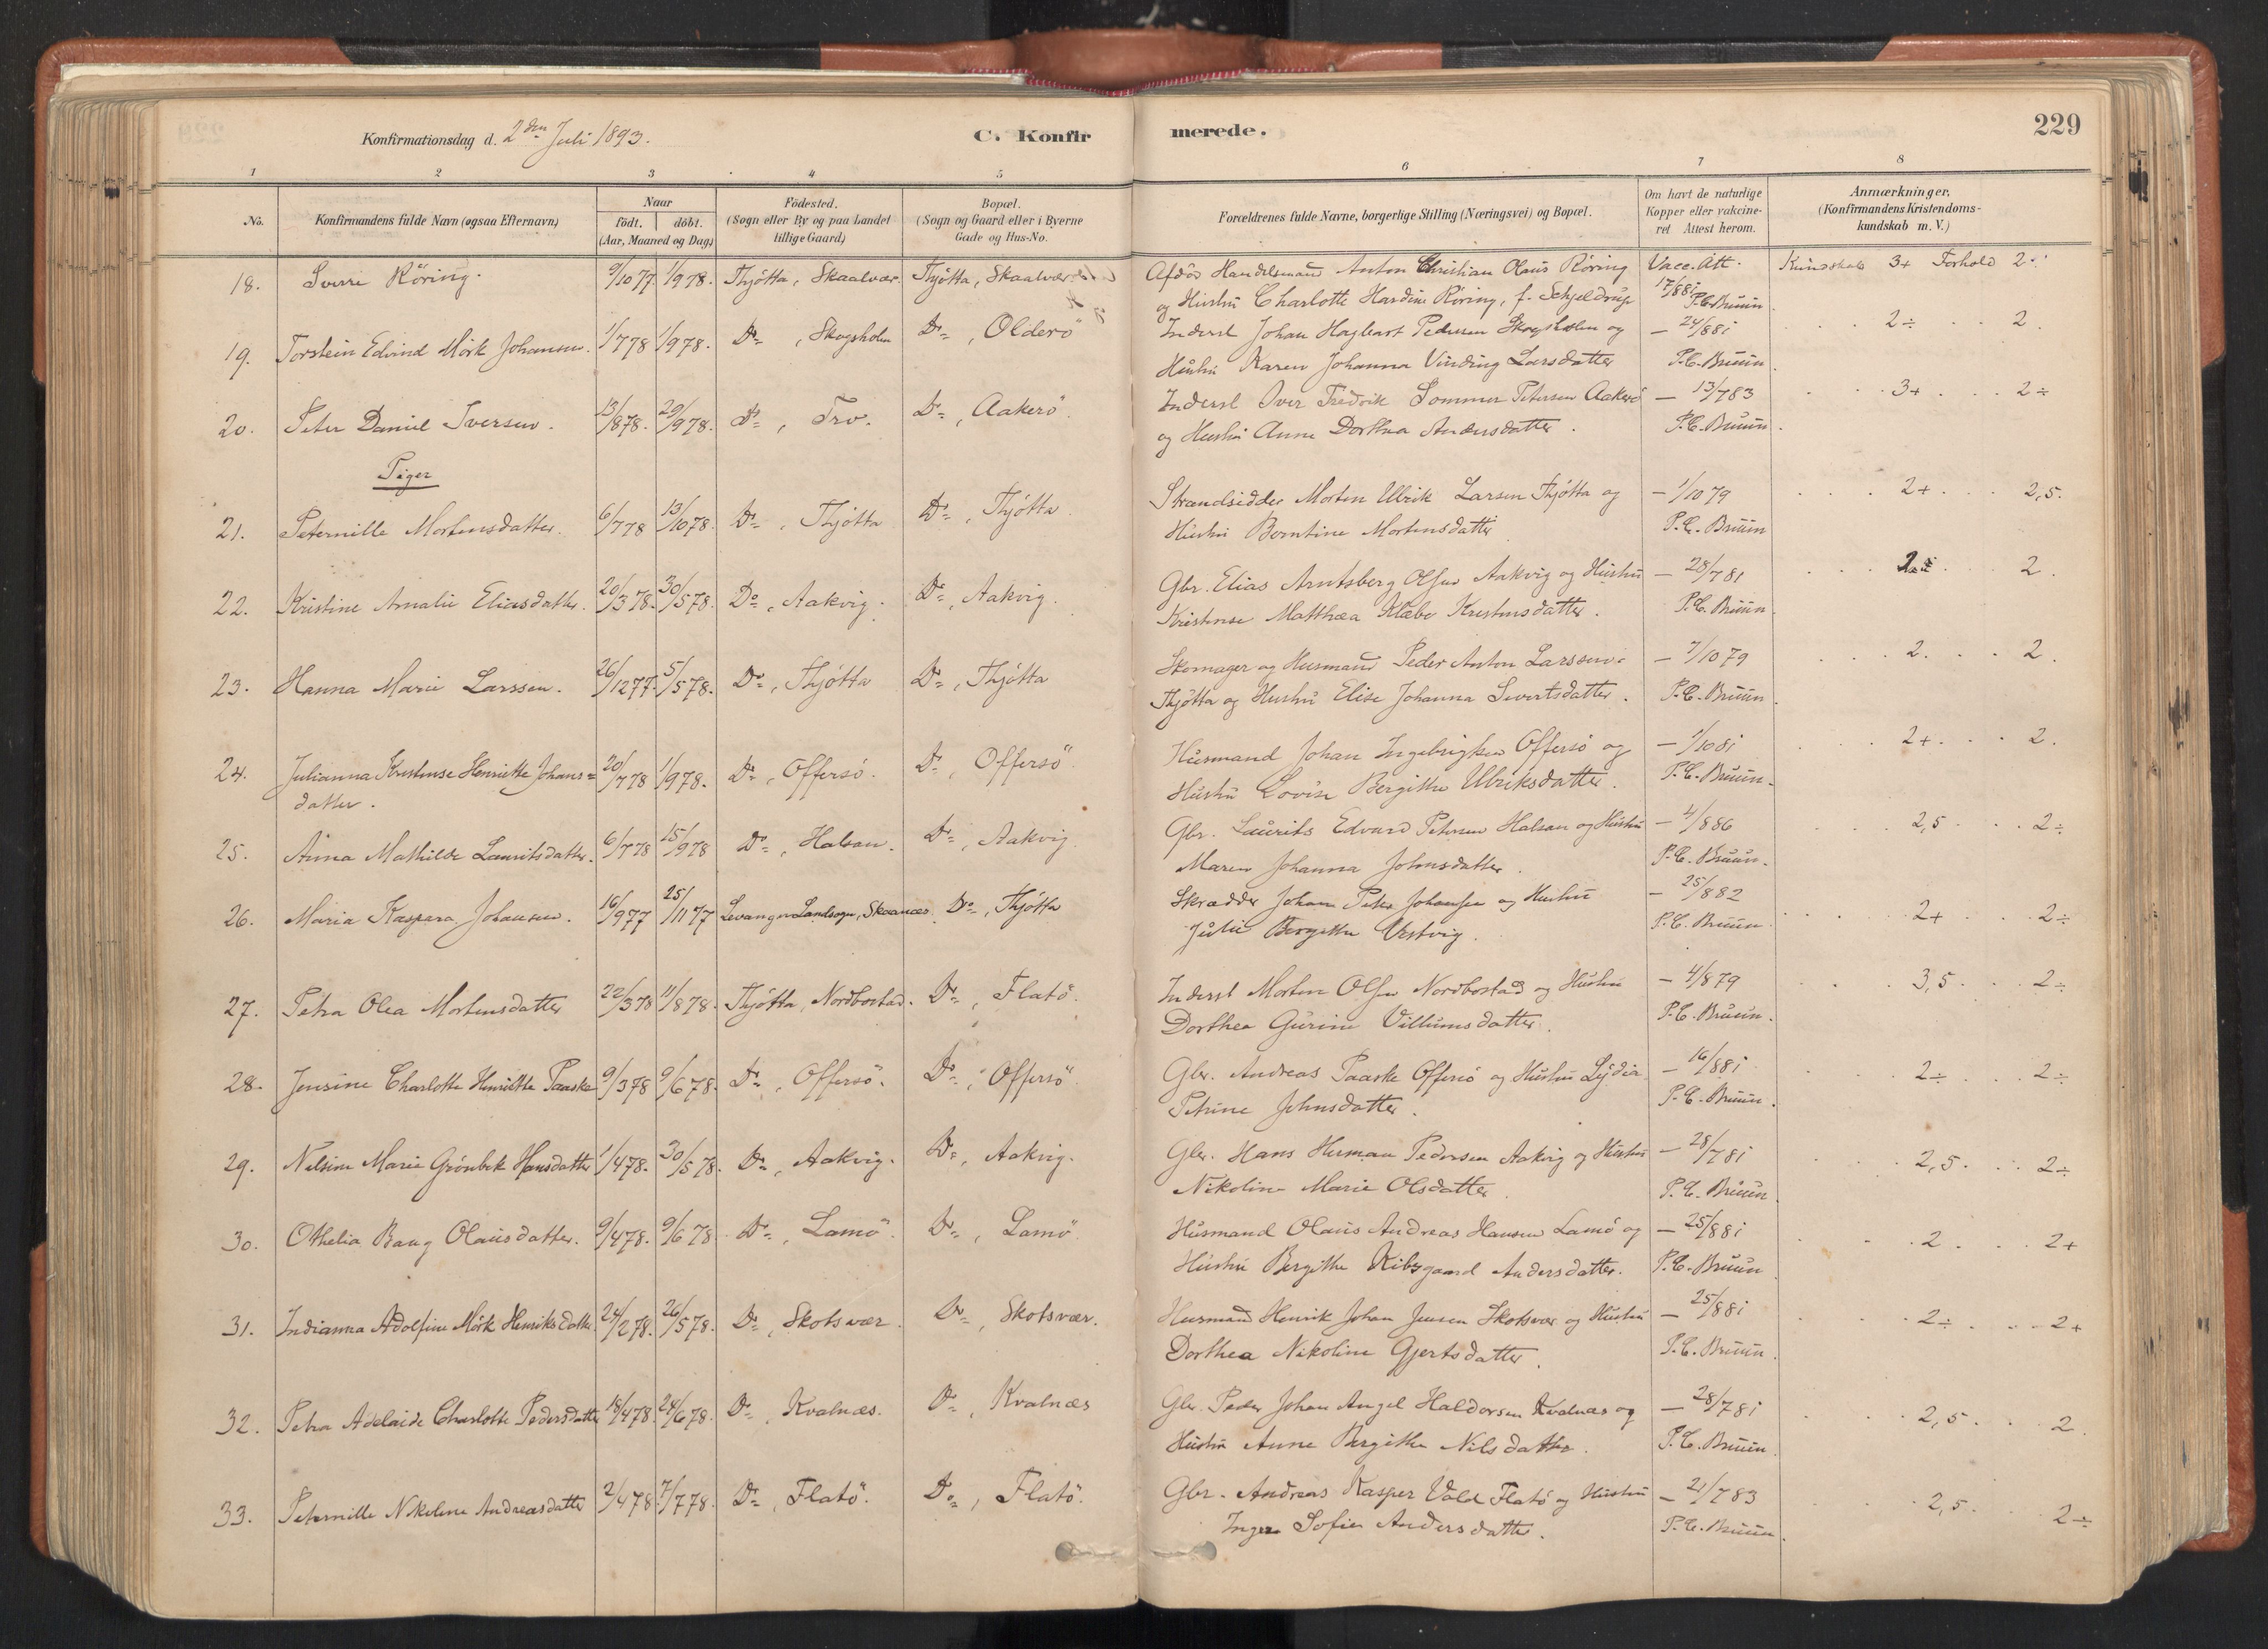 229
Konfirmationsdag d. 2den Juli 1893.
C. Konfir
merede.
1 2 3 4 5 6 7 8
No.
Konfirmandens fulde Navn (ogsaa Efternavn)
Naar
födt. döbt.
(Aar, Maaned og Dag)
Födested.
(Sogn eller By og paa Landet
tillige Gaard)
Bopæl.
(Sogn og Gaard eller i Byerne
Gade og Hus-No.
Forældrenes fulde Navne, borgerlige Stilling (Næringsvei) og Bopæl.
Om havt de naturlige
Kopper eller vakcine-
ret Attest herom.
Anmærkninger.
(Konfirmandens Kristendoms-
kundskab m. V.)
18. Sverre Röring. 9/10 77. 1/9 78. Thjötta, Skaalvær. Thjötta, Skaalvær
Afdøde Handelsmand Anton Christian Olaus Röring Vacc. Att. Kundskab 3+ Forhold 2
og Hustru Charlotte Hardine Röring, f. Schjeldrup 17/8 81 P.C. Bruun
19. Torstein Edvind Mörk Johansen. 1/7 78 1/9 78. Do , Skogsholm Do , Olderö
Inderst Johan Hagbart Pedersen Skogsholm og — 24/8 81 2÷ 2.
Hustru Karen Johanna Vinding Larsdatter P.C. Bruun.
20. Peter Daniel Iversen. 13/8 78. 29/9 78. Do , Tro. Do , Aakerö.
Inderst Iver Fredrik Sommer Petersen Aakerö — 13/7 83 3+ 2÷
og Hustru Anne Dorthea Andersdatter. P.C. Bruun.
Piger
21. Peternille Mortensdatter. 6/7 78 13/10 78. Do , Thjötta Do , Thjötta
Strandsidder Morten Ulrik Larsen Thjötta og — 1/10 79 2+ 2,5.
Hustru Berntine Mortensdatter P.C. Bruun
22. Kristine Amalie Eliasdatter. 20/3 78. 30/5 78. Do , Aakvig. Do , Aakvig.
Gbr. Elias Arntsberg Olsen Aakvig og Hustru — 28/7 81 2.
Kristense Matthæa Klæbo Kristensdatter. P.C. Bruun.
23. Hanna Marie Larssen. 26/12 77. 5/5 78. Do , Thjötta Do , Thjötta
Skomager og Husmand Peder Anton Larssen — 7/10 79 2. 2.
Thjötta og Hustru Elise Johanna Sivertsdatter. P.C. Bruun.
24. Julianna Kristense Henriette Johans= 20/7 78 1/9 78. Do , Offersö. Do , Offersö.
datter.
Husmand Johan Ingebrigtsen Offersö og — 1/10 81 2+ 2.
Hustru Lovise Bergitte Ulriksdatter. P.C. Bruun.
25. Anna Mathilde Lauritsdatter. 6/7 78 15/9 78 Do , Halsan. Do , Aakvig.
Gbr. Laurits Edvard Petersen Halsan og Hustru — 4/8 86 2,5 2÷
Maren Johanna Johnsdatter. P.C. Bruun.
26. Maria Kaspara Johansen. 16/9 77 25/11 77 Levanger Landsogn, Skaanæs. Do , Thjötta
Skrædder Johan Peter Johansen og Hustru — 25/8 82 2+ 2÷
Julie Bergitte Vestvig. P.C. Bruun.
27. Petra Olea Mortensdatter 22/3 78 11/8 78. Thjötta, Nordbostad. Do , Flatö.
Inderst Morten Olsen Nordbostad og Hustru — 4/8 79 3,5 2÷
Dorthea Gurine Villumsdatter. P.C. Bruun.
28. Jensine Charlotte Henriette Paaske 9/3 78 9/6 78. Do , Offersö. Do , Offersö.
Gbr. Andreas Paaske Offersö og Hustru Lydia — 16/8 81 2÷ 2÷
Petrine Johnsdatter. P.C. Bruun.
29. Nelsine Marie Grönbek Hansdatter 1/4 78. 30/5 78. Do , Aakvig. Do , Aakvig.
Gbr. Hans Herman Pedersen Aakvig og Hustru — 28/7 81 2,5. 2÷
Nikoline Marie Olsdatter. P.C. Bruun.
30. Othelia Baug Olausdatter. 9/4 78. 9/6 78. Do , Lamö. Do , Lamö.
Husmand Olaus Andreas Hansen Lamö og — 25/8 81 2. 2+
Hustru Bergitte Kibsgaard Andersdatter. P.C. Bruun
31. Indianna Adolfine Mörk Henriksdatter. 24/2 78. 26/5 78. Do , Skotsvær. Do , Skotsvær.
Husmand Henrik Johan Jensen Skotsvær og Hustru — 25/8 81 2÷ 2+
Dorthea Nikoline Gjertsdatter. P.C. Bruun.
32. Petra Adelaide Charlotte Pedersdatter 18/4 78. 24/6 78. Do , Kvalnæs. Do , Kvalnæs
Gbr. Peder Johan Angel Haldorsen Kvalnæs og — 28/7 81 2,5 2.
Hustru Anne Bergitte Nilsdatter. P.C. Bruun.
33. Peternille Nikoline Andreasdatter 2/4 78. 7/7 78. Do , Flatö. Do , Flatö.
Gbr. Andreas Kasper Vold Flatö og Hustru — 21/7 83 2,5 2÷
Inger Sofie Andersdatter. P.C. Bruun.